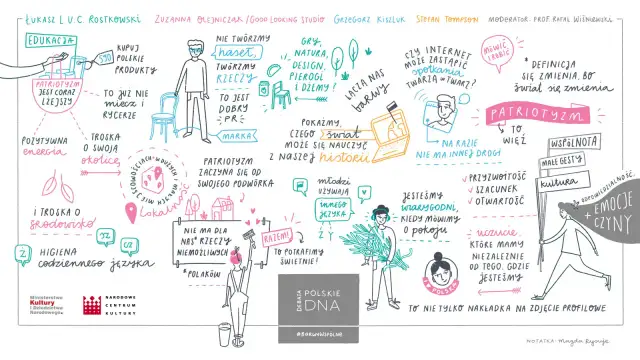 ŁUKASZ L.U.C. ROSTKOWSKI
ZUZANNA OLEJNICZAK / GOOD LOOKING STUDIO
GRZEGORZ KISZLUK
STEFAN TOMPSON
MODERATOR: PROF. RAFAŁ WIŚNIEWSKI
EDUKACJA
590
KUPUJ
POLSKIE
PRODUKTY
PATRIOTYZM
JEST CORAZ
LŻEJSZY
TO JUŻ NIE
MIECZ I
RYCERZE
POZYTYWNA
energia
TROSKA
O SWOJĄ
okolicę
I TROSKA O
środowisko
HIGIENA
codziennego języka
NIE TWÓRZMY
haseł,
TWÓRZMY
RZECZY
TO JEST
DOBRY
PR
MARKA
W MIEJSCOWOŚCIACH DUŻYCH I MAŁYCH
lokalność
PATRIOTYZM
ZACZYNA SIĘ OD
SWOJEGO PODWÓRKA
NIE MA DLA
NAS* RZECZY
NIEMOŻLIWYCH
* POLAKÓW
RAZEM!
TO POTRAFIMY
ŚWIETNIE!
GRY,
NATURA,
DESIGN,
PIEROGI
I DŻEMY!
ŁĄCZĄ NAS
barwy
POKAŻMY,
CZEGO świat
MOŻE SIĘ NAUCZYĆ
Z naszej
historii
CZY INTERNET
MOŻE ZASTĄPIĆ
spotkania
TWARZĄ W TWARZ?
NA RAZIE
NIE MA INNEJ DROGI
MÓWIĆ
I ROBIĆ
* DEFINICJA
SIĘ ZMIENIA, BO
świat się zmienia
PATRIOTYZM
TO
WIĘŹ
WSPÓLNOTA
MAŁE GESTY
kultura
PRZYZWOITOŚĆ
SZACUNEK
OTWARTOŚĆ
ODPOWIEDZIALNOŚĆ
EMOCJE
+ CZYNY
młodzi
UŻYWAJĄ
innego
języka
JESTEŚMY
wiarygodni,
KIEDY MÓWIMY
O pokoju
uczucie,
KTÓRE MAMY
NIEZALEŻNIE
OD TEGO, GDZIE
JESTEŚMY
TO NIE TYLKO NAKŁADKA NA ZDJĘCIE PROFILOWE
DEBATA
POLSKIE
DNA
#BARWYWSPOLNE
Ministerstwo
Kultury
i Dziedzictwa
Narodowego
NARODOWE
CENTRUM
KULTURY